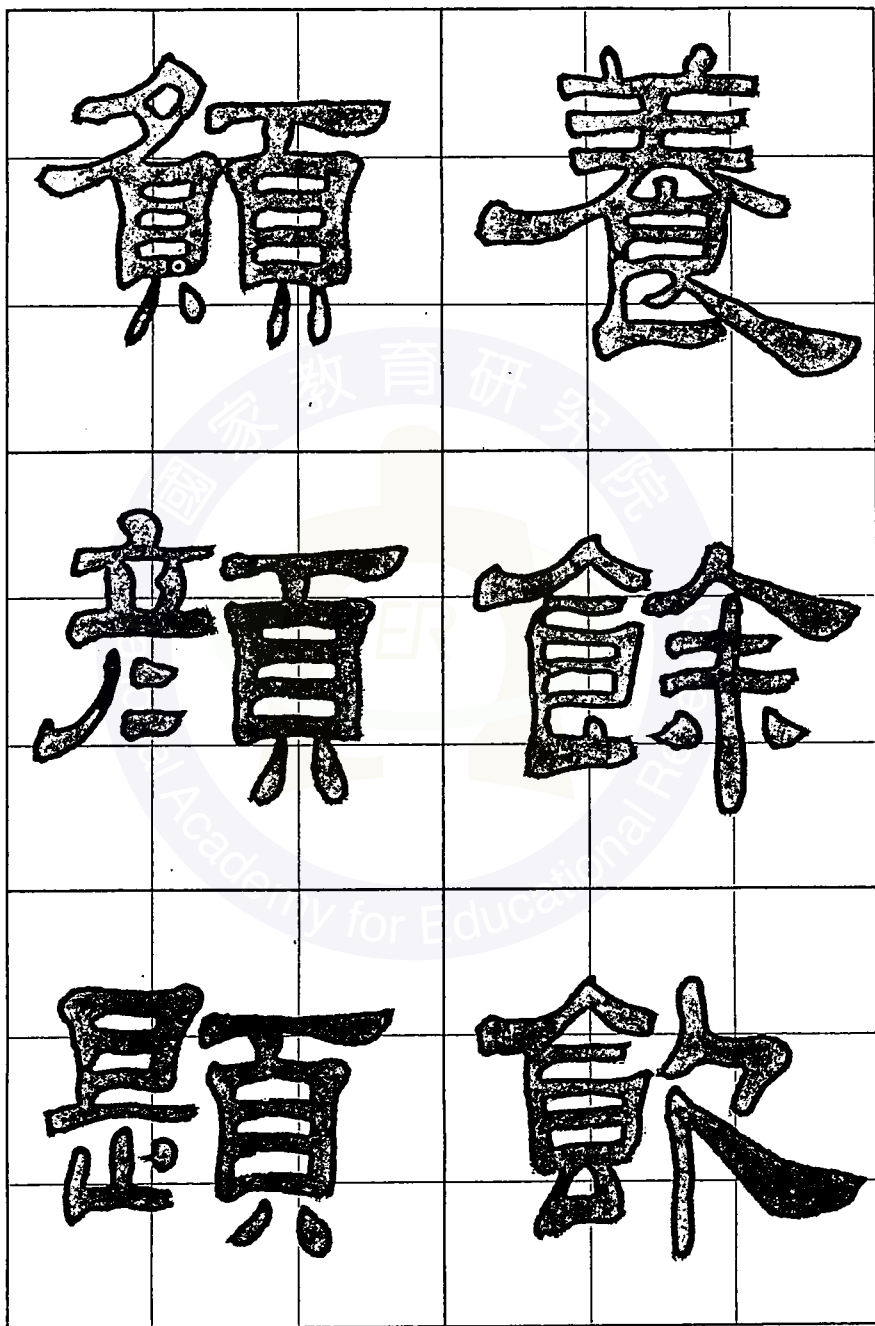 養
餘
飲
顏
題
國家教育研究院
National Academy for Educational Research